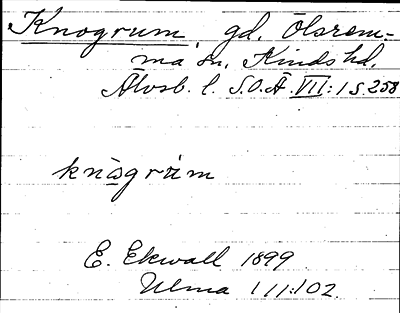 Knogrum, gd. Ölsrem-
ma sn, Kinds hd.
Älvsb. l. S.O.Ä. VII:1 s. 258
knågrum
E. Ekwall 1899
Ulma 111:102.